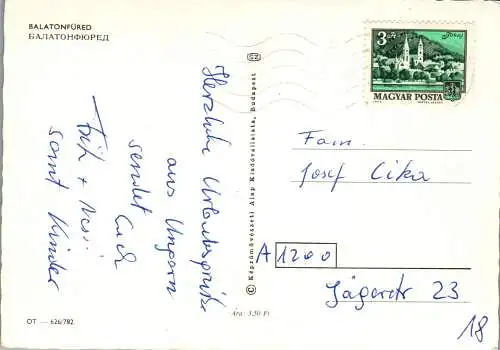 BALATONFÜRED
БАЛАТОНФЮРЕД
Herzliche Urlaubsgrüße
aus Ungarn
sendet Euch
Fritz + Resi
samt Kinder
OT — 626/782
© Képzőművészeti Alap Kiadóvállalata, Budapest
Ára: 3,50 Ft
3 Ft
MAGYAR POSTA
Fam.
Josef Cika
A 1200
Jägerstr 23
18